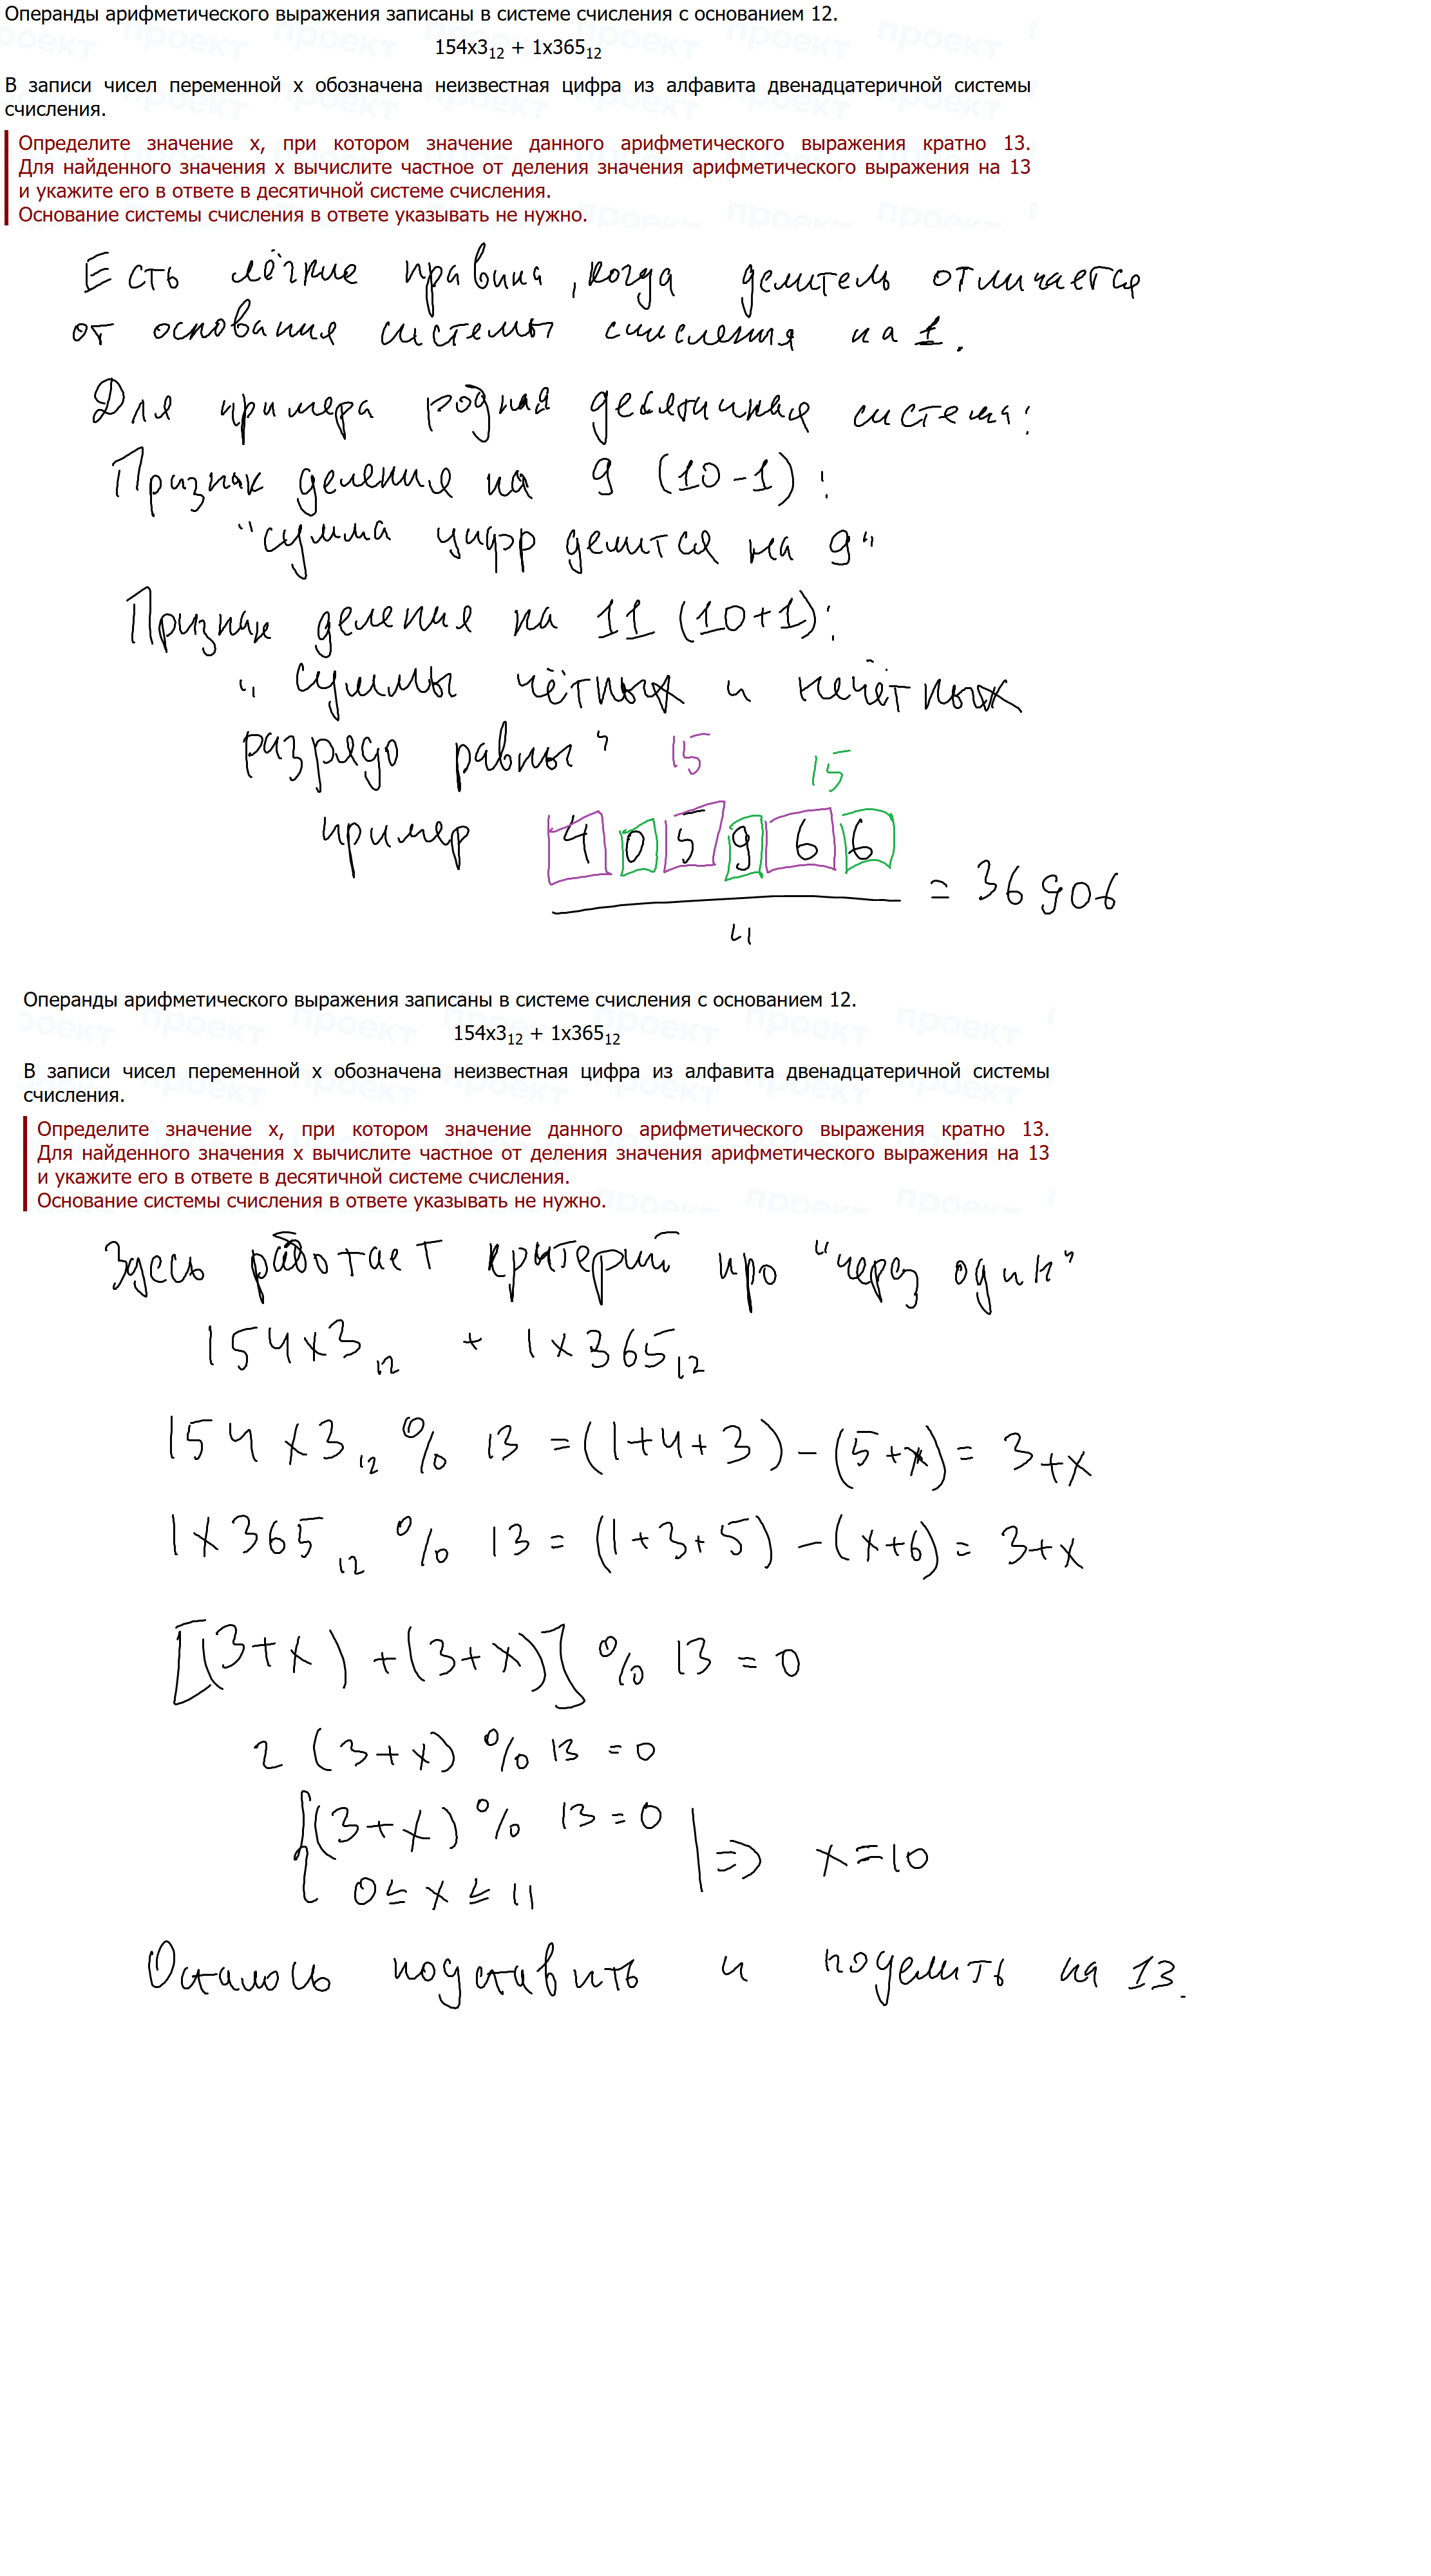 Операнды арифметического выражения записаны в системе счисления с основанием 12.
154x3₁₂ + 1x365₁₂
В записи чисел переменной x обозначена неизвестная цифра из алфавита двенадцатеричной системы
счисления.
Определите значение x, при котором значение данного арифметического выражения кратно 13.
Для найденного значения x вычислите частное от деления значения арифметического выражения на 13
и укажите его в ответе в десятичной системе счисления.
Основание системы счисления в ответе указывать не нужно.
Есть лёгкие правила, когда делитель отличается
от основания системы счисления на 1.
Для примера родная десятичная система:
Признак деления на 9 (10-1):
"сумма цифр делится на 9"
Признак деления на 11 (10+1):
"суммы чётных и нечётных
разрядо равны"
15
15
пример
405966
= 36906
11
Операнды арифметического выражения записаны в системе счисления с основанием 12.
154x3₁₂ + 1x365₁₂
В записи чисел переменной x обозначена неизвестная цифра из алфавита двенадцатеричной системы
счисления.
Определите значение x, при котором значение данного арифметического выражения кратно 13.
Для найденного значения x вычислите частное от деления значения арифметического выражения на 13
и укажите его в ответе в десятичной системе счисления.
Основание системы счисления в ответе указывать не нужно.
Здесь работает критерий про "через один"
154x3₁₂ + 1x365₁₂
154x3₁₂ % 13 = (1+4+3) - (5+x) = 3+x
1x365₁₂ % 13 = (1+3+5) - (x+6) = 3+x
[(3+x) + (3+x)] % 13 = 0
2 (3+x) % 13 = 0
(3+x) % 13 = 0
=> x=10
0 ≤ x ≤ 11
Осталось подставить и поделить на 13.